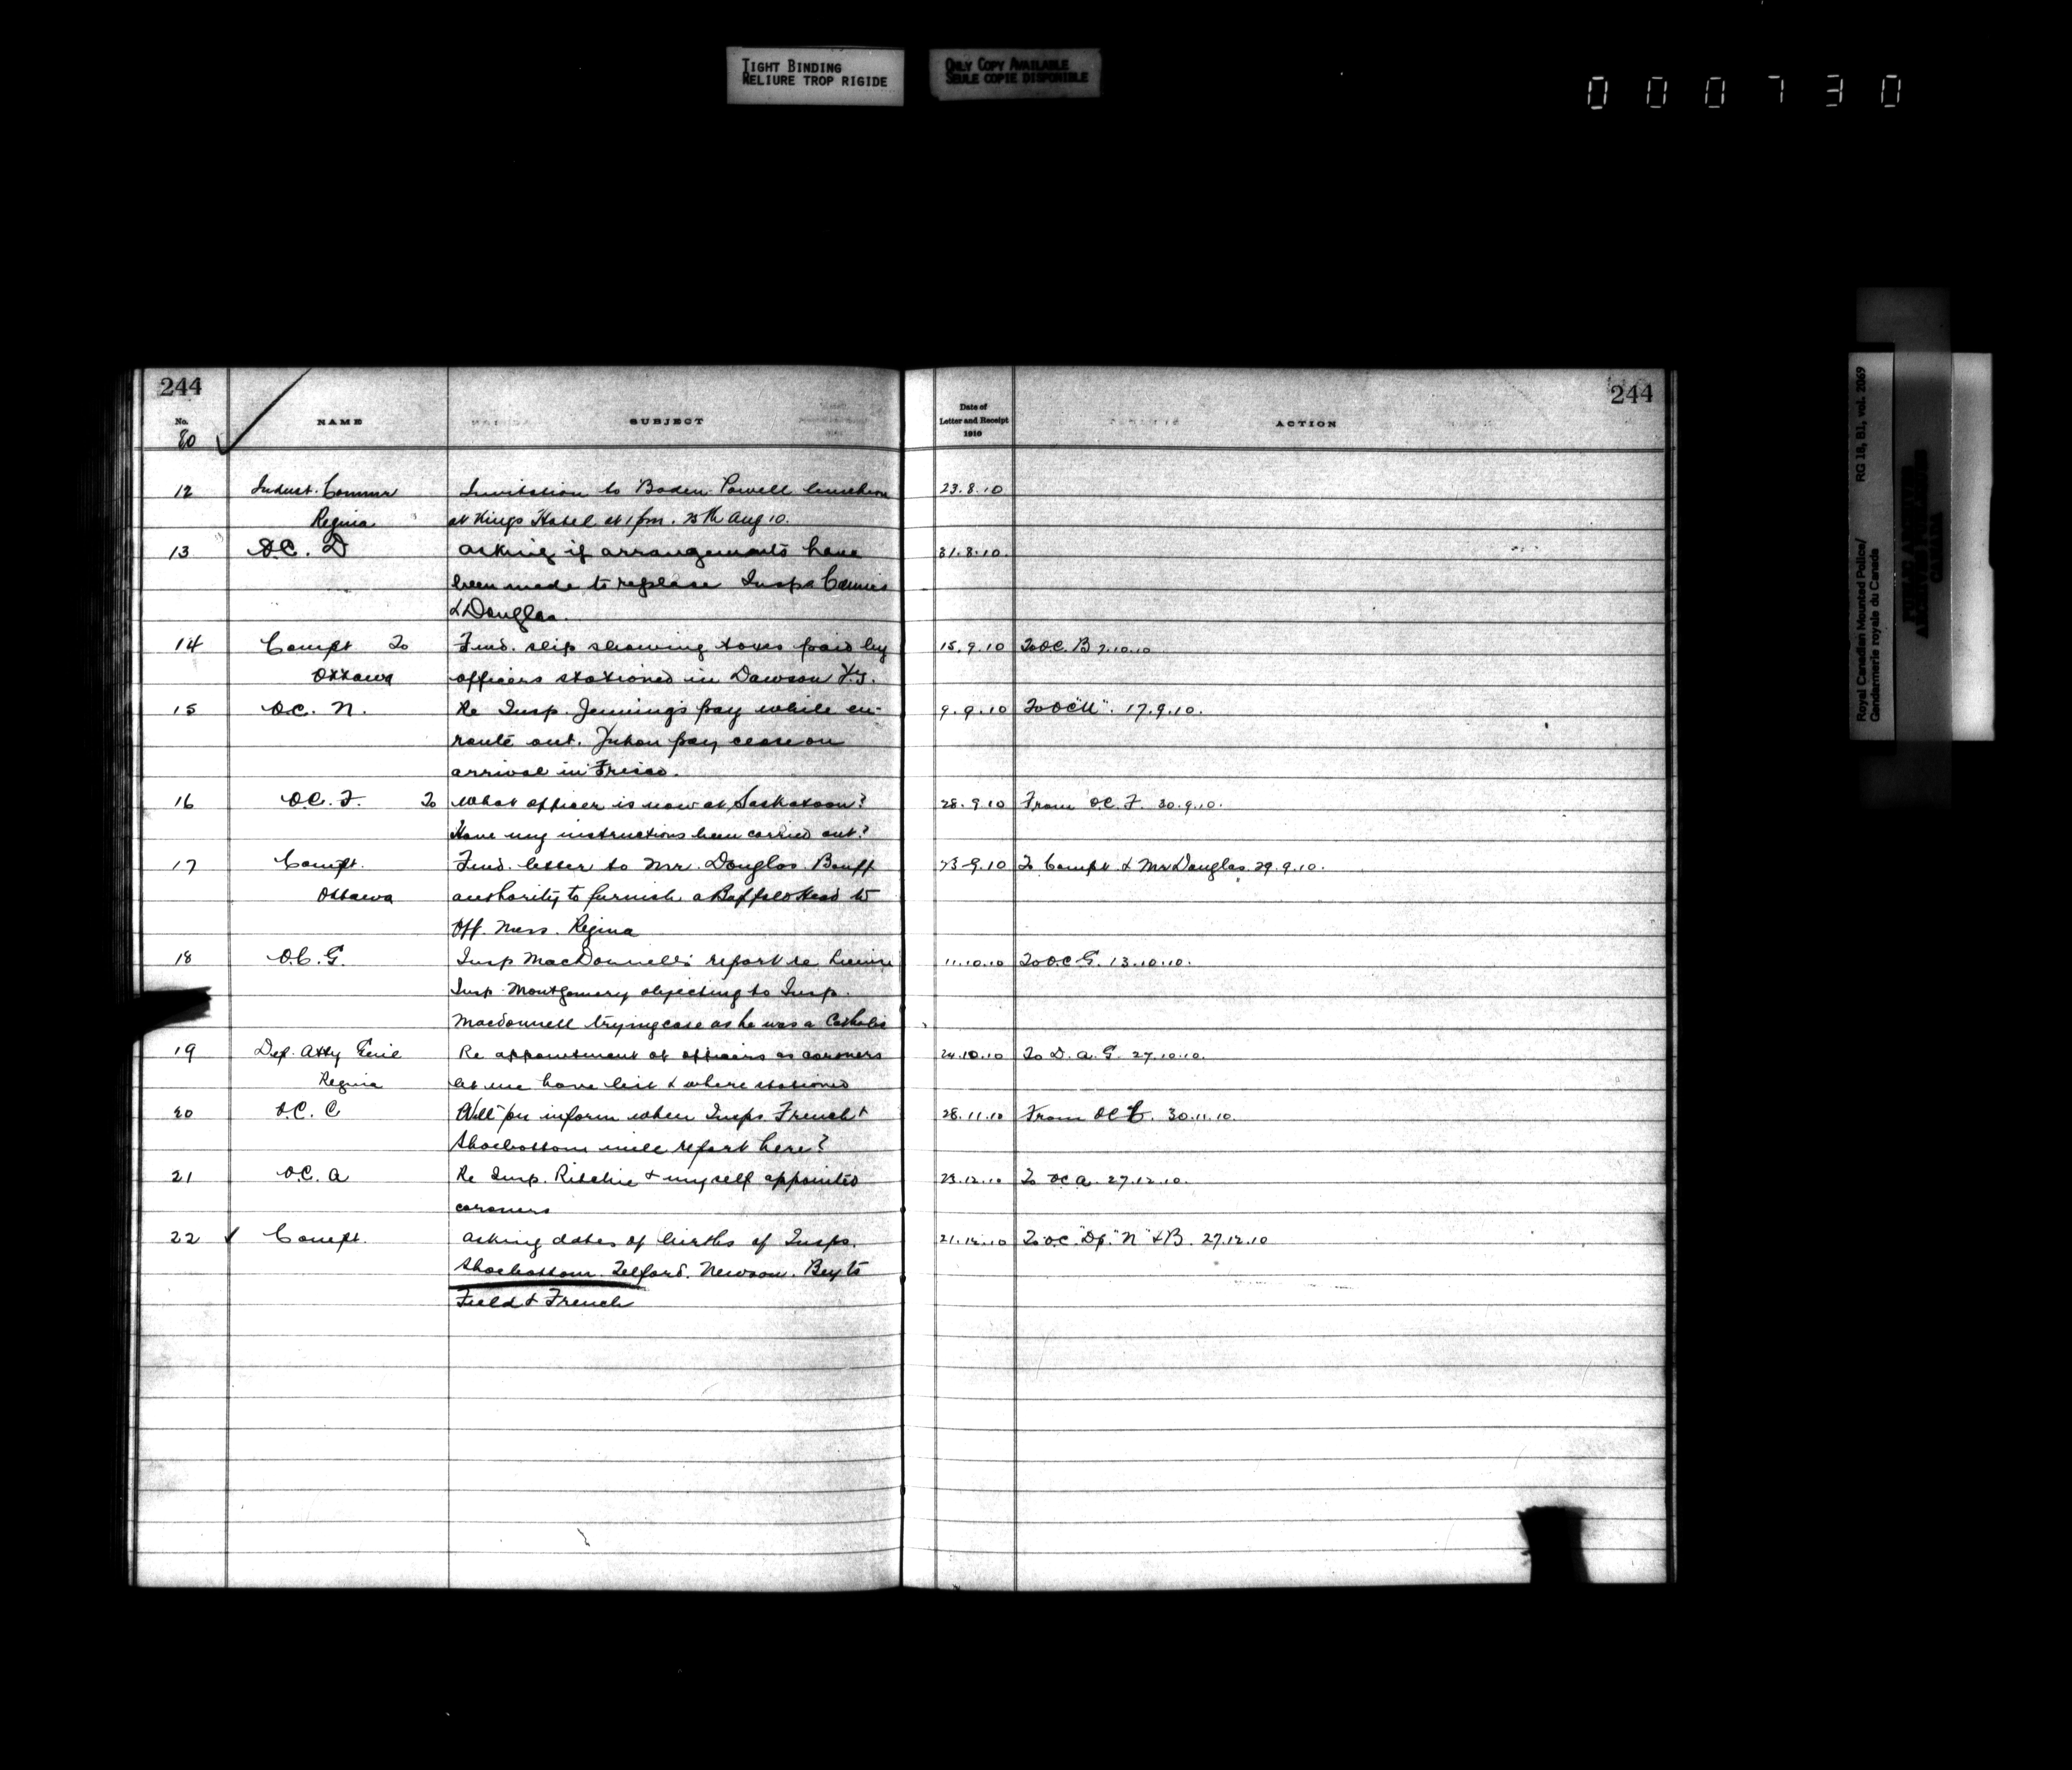 TIGHT BINDING
RELIURE TROP RIGIDE
ONLY COPY AVAILABLE
SEULE COPIE DISPONIBLE
000730
244
No. NAME SUBJECT
80
Date of
Letter and Receipt
1910
ACTION
244
12 Indust. Commr Invitation to Baden Powell luncheon 23.8.10
Regina at Kings Hotel at 1 pm. 25th Aug 10.
13 O.C. D asking if arrangements have 31.8.10
been made to replace Insps
& Douglas.
14 Compt To Fwd. slip showing taxes paid by 15.9.10 To O.C. B 7.10.10
Ottawa officers stationed in Dawson Y.T.
15 O.C. N. Re Insp. Jennings pay while en- 9.9.10 To OC 17.9.10.
route out. Yukon pay cease on
arrival in Frisco.
16 O.C. F. To What officer is now at Saskatoon? 28.9.10 From O.C. F. 30.9.10.
Have my instructions been carried out?
17 Compt. Fwd. letter to Mr. Douglas Banff 23-9.10 To Compt & Mr Douglas 29.9.10.
Ottawa authority to furnish a Buffalo Head to
Off. Mess. Regina
18 O.C. G. Insp MacDonnell's report re 11.10.10 To O.C G. 13.10.10.
Insp Montgomery objecting to Insp.
Macdonnell trying case as he was a Catholic
19 Dep. Atty Genl Re appointment of officers as coroners 24.10.10 To D. A. G. 27.10.10.
Regina let me have list & where stationed
20 O.C. C Will you inform when Insps. French & 28.11.10 From OC C. 30.11.10.
Shoebottom will report here?
21 O.C. A Re Insp. Ritchie & myself appointed 23.12.10 To OC A. 27.12.10.
coroners
22 ✓ Compt. asking dates of births of Insps. 21.12.10 To O.C. "Dp." "N" & B. 27.12.10
Shoebottom. Telford. Newson. Beyts
Field & French
Royal Canadian Mounted Police/ RG 18, B1, vol. 2069
Gendarmerie royale du Canada
PUBLIC ARCHIVES
ARCHIVES PUBLIQUES
CANADA